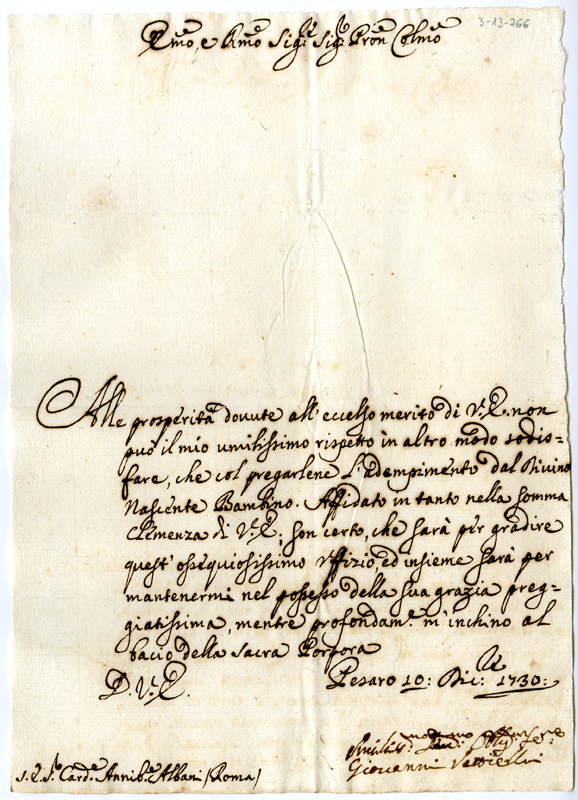 3-13-266
Emo, e Rmo Sig.r Sig.r Pron Colmo
Alle prosperità dovute all'eccelso merito di V.E. non
può il mio umilissimo rispetto in altro modo sodis=
fare, che col pregarlene l'adempimento dal Divino
Nascente Bambino. Affidato in tanto nella somma
Clemenza di V.E., son certo, che sarà per gradire
quest'ossequiosissimo Uffizio, ed insieme sarà per
mantenermi nel possesso della sua grazia preg=
giatissima, mentre profondam.e m'inchino al
bacio della Sacra Porpora
D. V. E.
Pesaro 10: Dic: 1730:
Giovanni
S.E. S.r Card.e Annib.e Albani (Roma)